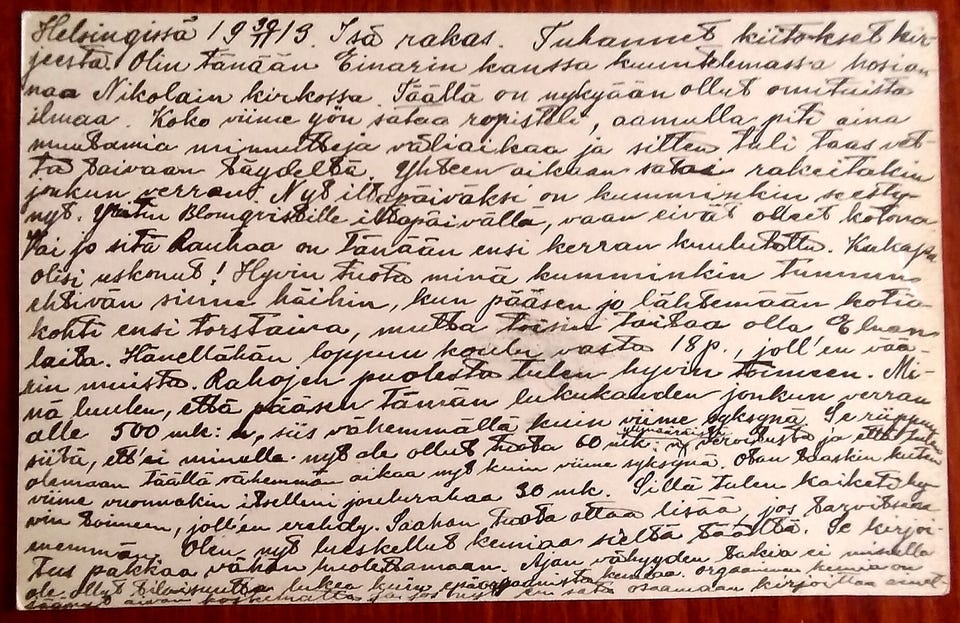 Helsingissä 19 30/11 13. Isä rakas. Tuhannet kiitokset kir-
jeestä. Olin tänään Einarin kanssa kuuntelemassa hosian-
naa Nikolain kirkossa. Täällä on nykyään ollut omituista
ilmaa. Koko viime yön sataa ropisteli, aamulla piti aina
muutamia minuutteja väliaikaa ja sitten tuli taas vet-
tä taivaan täydeltä. Yhteen aikaan satoi rakeitakin
jonkun verran. Nyt iltapäiväksi on kumminkin seesty-
nyt. Blomqvistille iltapäivällä, vaan eivät olleet kotona
Vai jo sitä Rauhaa on tänään ensi kerran kuulutettu. Kukapa
olisi uskonut! Hyvin tuota minä kumminkin tunnun
ehtivän sinne häihin, kun pääsen jo lähtemään kotia
kohti ensi torstaina, mutta toisin taitaa olla Elman
laita. Hänellähän loppuu koulu vasta 18 p., joll'en vää-
rin muista. Rahojen puolesta tulen hyvin toimeen. Mi-
nä luulen, että pääsen tämän lukukauden jonkun verran
alle 500 mk:n, siis vähemmällä kuin viime syksynä. Se riippuu
siitä, ett'ei minulla nyt ole ollut tuota 60 mk:n ylimääräistä ja että tulen
olemaan täällä vähemmän aikaa nyt kuin viime syksynä. Otan taaskin kuten
viime vuonnakin itselleni joulurahaa 30 mk. Sillä tulen kaiketi hy-
vin toimeen, joll'en erehdy. Saahan tuota ottaa lisää, jos tarvitsee
enemmän. Olen nyt lueskellut kemiaa sieltä täältä. Se kirjoi-
tus pakkaa vähän huolettamaan. Ajan vähyyden takia ei minulla
ole ollut tilaisuutta lukea kuin epäorgaanista kemiaa. orgaaninen kemia on
aivan koskematta ja jos nyt en satu osaamaan kirjoittaa